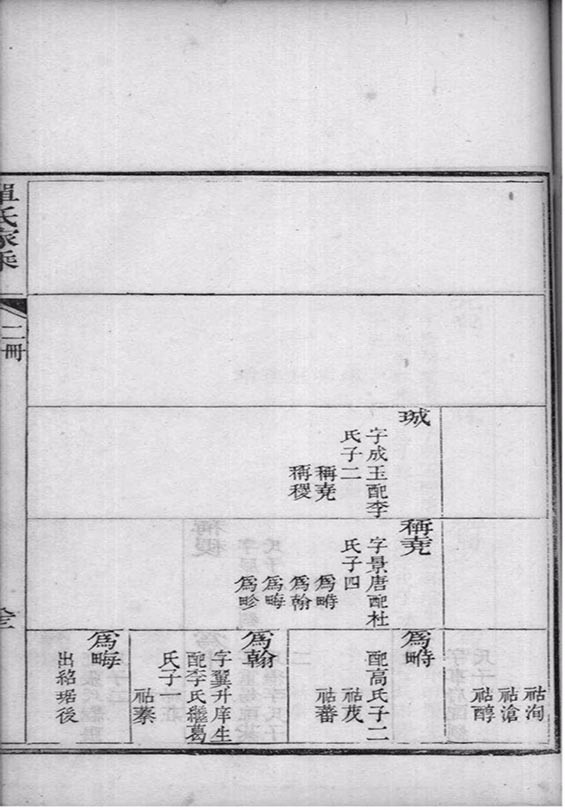 珹
字成玉配李
氏子二
稱堯
稱稷
稱堯
字景唐配杜
氏子四
為疇
為翰
為畮
為畛
祜洵
祜滄
祜醇
為疇
配高氏子二
祜茂
祜蕃
為翰
字冀升庠生
配李氏繼葛
氏子一
祜蓁
為畮
出紹琚後
氏家乘
二冊